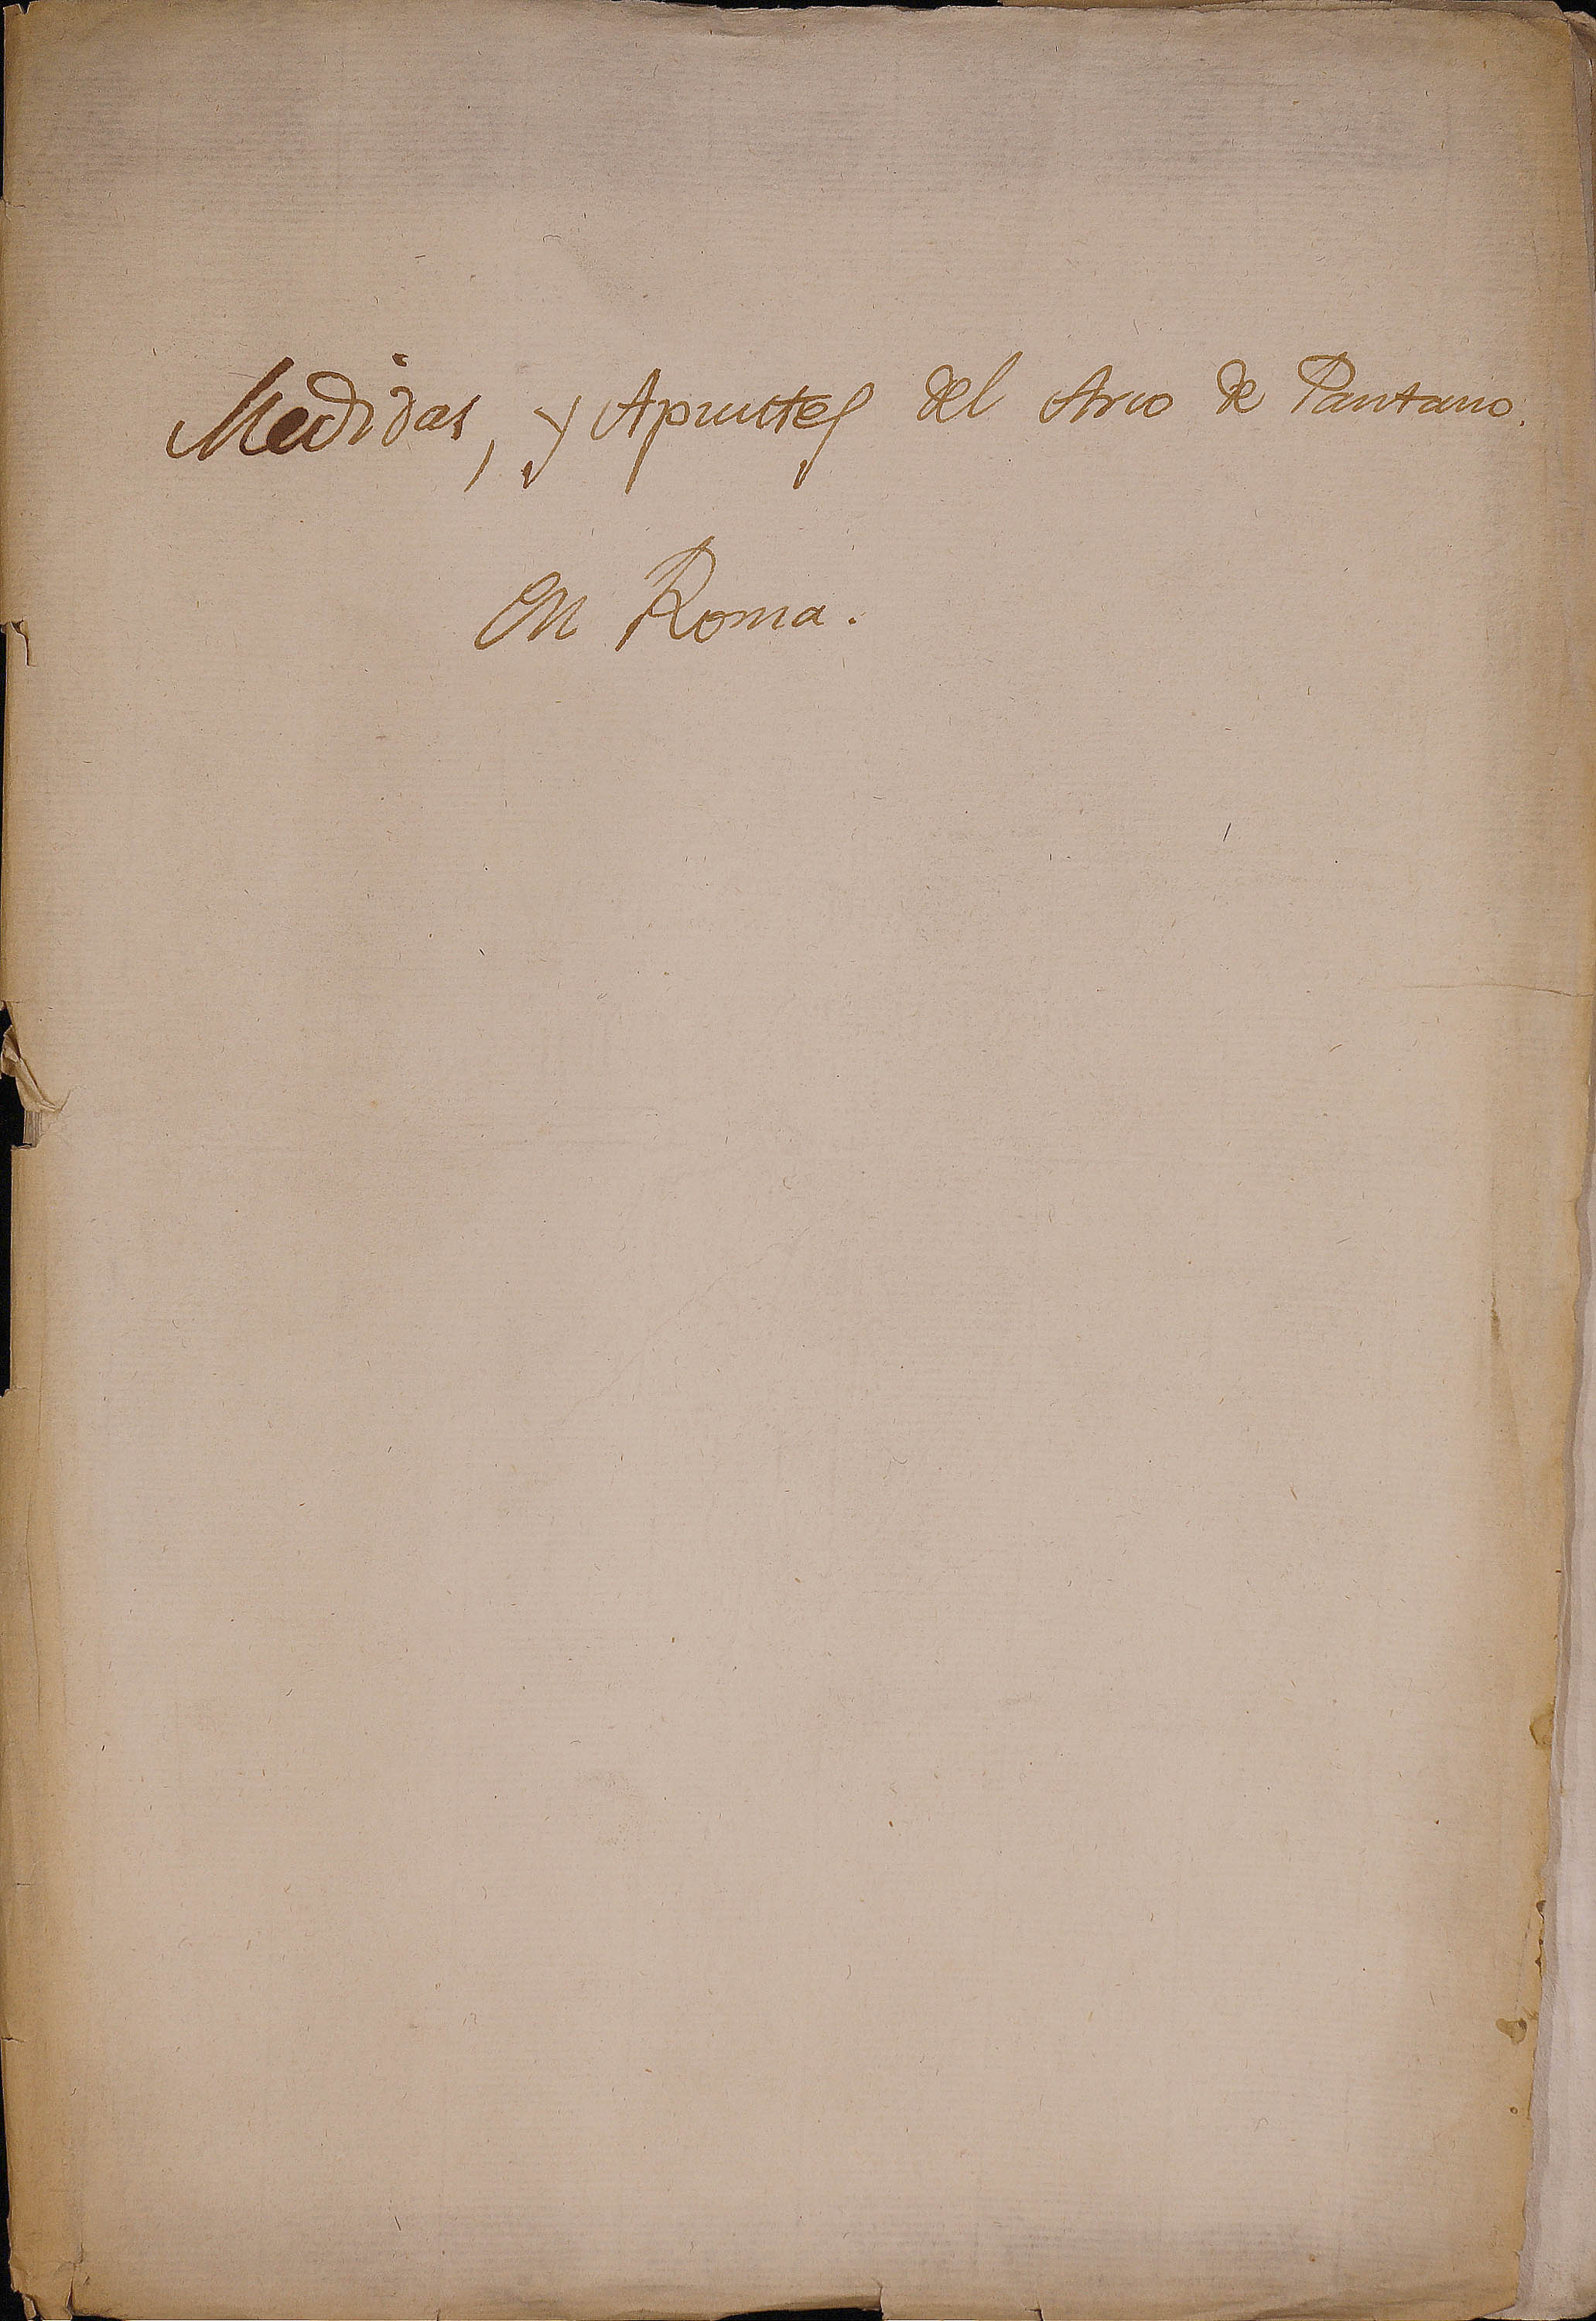 Medidas, y Apuntes del Arco de Pantano.
en Roma.